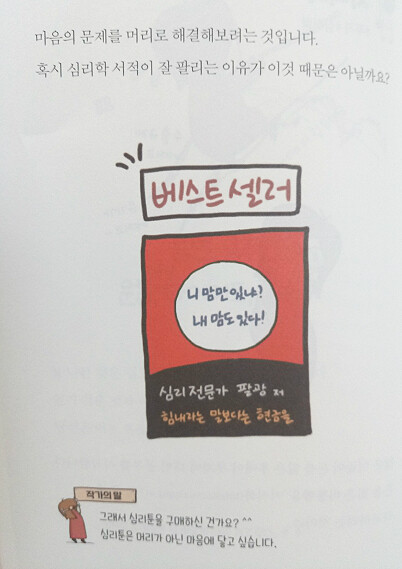 마음의 문제를 머리로 해결해보려는 것입니다.
혹시 심리학 서적이 잘 팔리는 이유가 이것 때문은 아닐까요?
베스트 셀러
니 맘만 있냐?
내 맘도 있다!
심리 전문가 팔광 저
힘내라는 말보다는 현금을
작가의 말
그래서 심리툰을 구매하신 건가요? ^^
심리툰은 머리가 아닌 마음에 닿고 싶습니다.